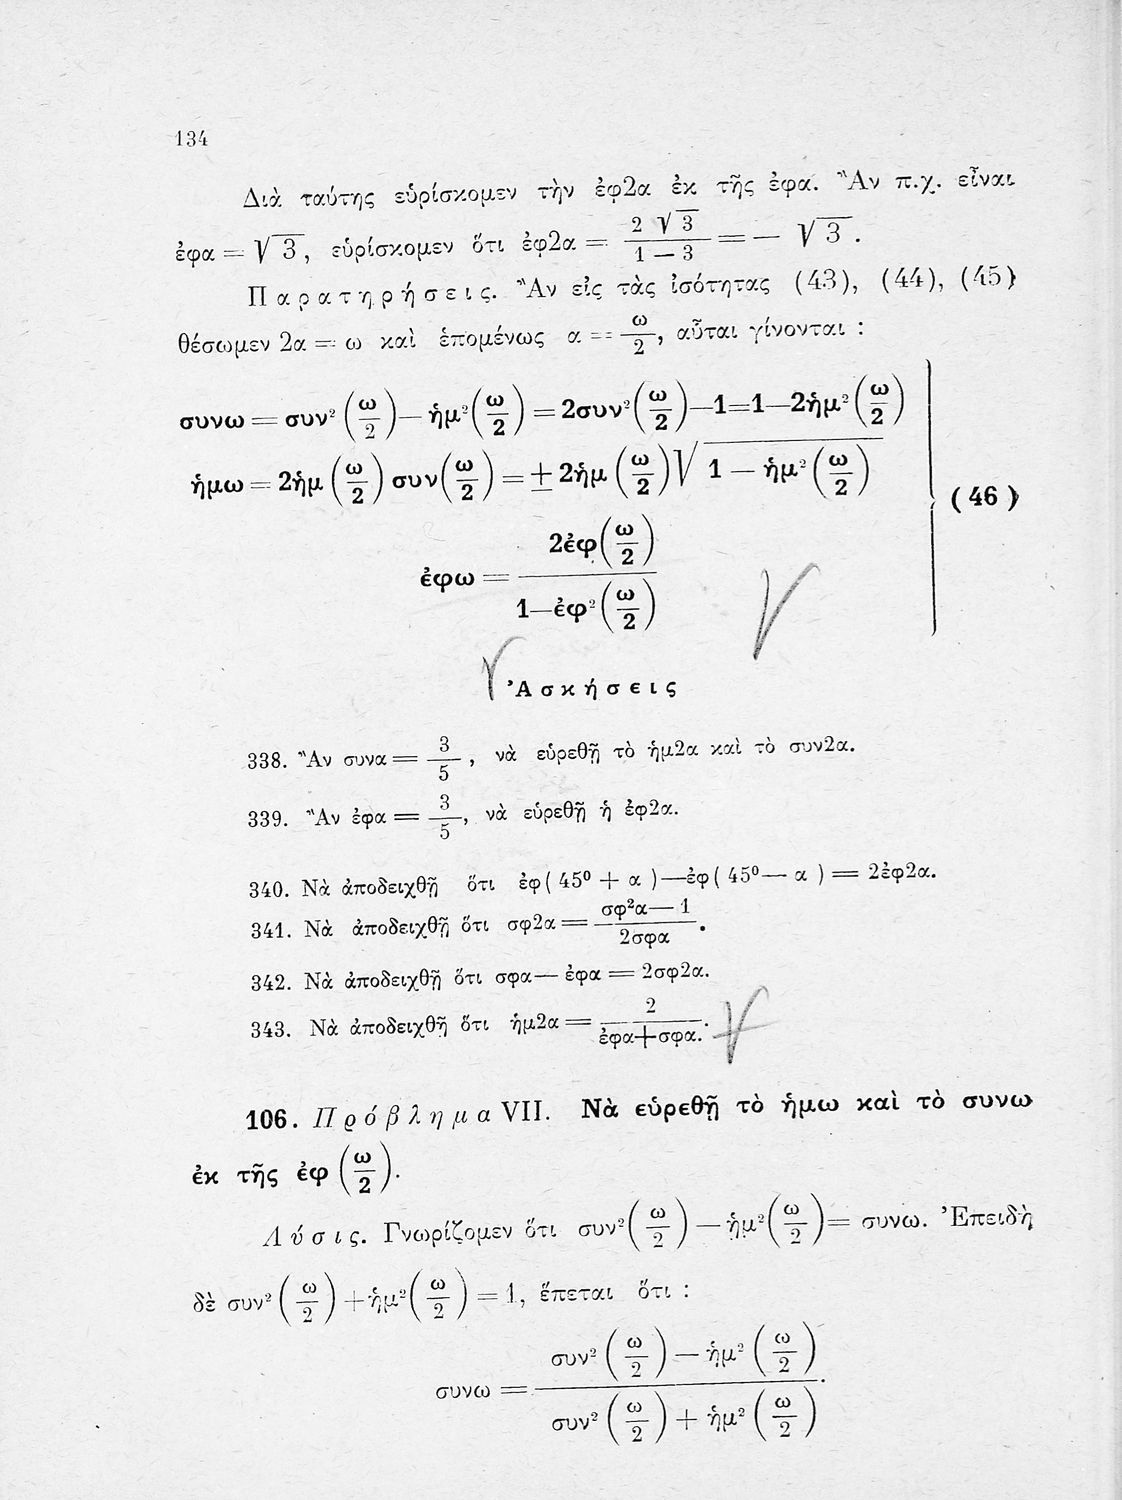 134
Διὰ ταύτης εὑρίσκομεν τὴν ἐφ2α ἐκ τῆς ἐφα. Ἂν π.χ. εἶναι
ἐφα = √3, εὑρίσκομεν ὅτι ἐφ2α = 2√3 / 1 — 3 = — √3.
Παρατηρήσεις. Ἂν εἰς τὰς ἰσότητας (43), (44), (45)
θέσωμεν 2α = ω καὶ ἑπομένως α = ω/2, αὗται γίνονται :
συνω = συν² (ω/2) — ἡμ² (ω/2) = 2συν² (ω/2) —1=1—2ἡμ² (ω/2)
ἡμω = 2ἡμ (ω/2) συν (ω/2) = ± 2ἡμ (ω/2) √1 — ἡμ² (ω/2)
(46)
ἐφω = 2ἐφ(ω/2) / 1—ἐφ² (ω/2)
Ἀσκήσεις
338. Ἂν συνα = 3/5, νὰ εὑρεθῇ τὸ ἡμ2α καὶ τὸ συν2α.
339. Ἂν ἐφα = 3/5, νὰ εὑρεθῇ ἡ ἐφ2α.
340. Νὰ ἀποδειχθῇ ὅτι ἐφ( 45⁰ + α )—ἐφ( 45⁰— α ) = 2ἐφ2α.
341. Νὰ ἀποδειχθῇ ὅτι σφ2α = σφ²α— 1 / 2σφα .
342. Νὰ ἀποδειχθῇ ὅτι σφα— ἐφα = 2σφ2α.
343. Νὰ ἀποδειχθῇ ὅτι ἡμ2α = 2 / ἐφα+σφα. .
106. Πρόβλημα VII. Νὰ εὑρεθῇ τὸ ἡμω καὶ τὸ συνω
ἐκ τῆς ἐφ (ω/2).
Λύσις. Γνωρίζομεν ὅτι συν² (ω/2) — ἡμ² (ω/2) = συνω. Ἐπειδὴ
δὲ συν² (ω/2) + ἡμ² (ω/2) = 1, ἕπεται ὅτι :
συνω = συν² (ω/2) — ἡμ² (ω/2) / συν² (ω/2) + ἡμ² (ω/2) .